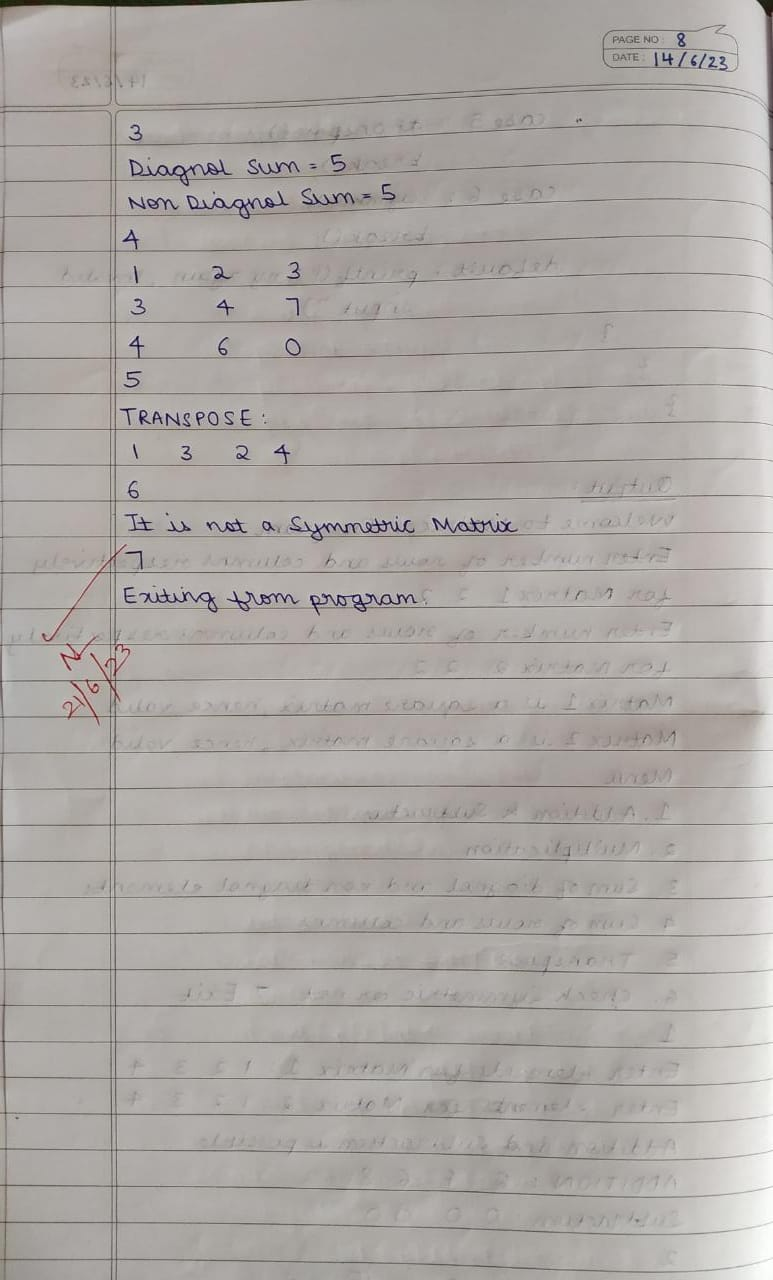 PAGE NO: 8
DATE: 14/6/23
3
Diagnol Sum = 5
Non Diagnol Sum = 5
4
1 2 3
3 4 7
4 6 0
5
TRANSPOSE:
1 3 2 4
6
It is not a Symmetric Matrix
7
Exiting from program.
21/6/23